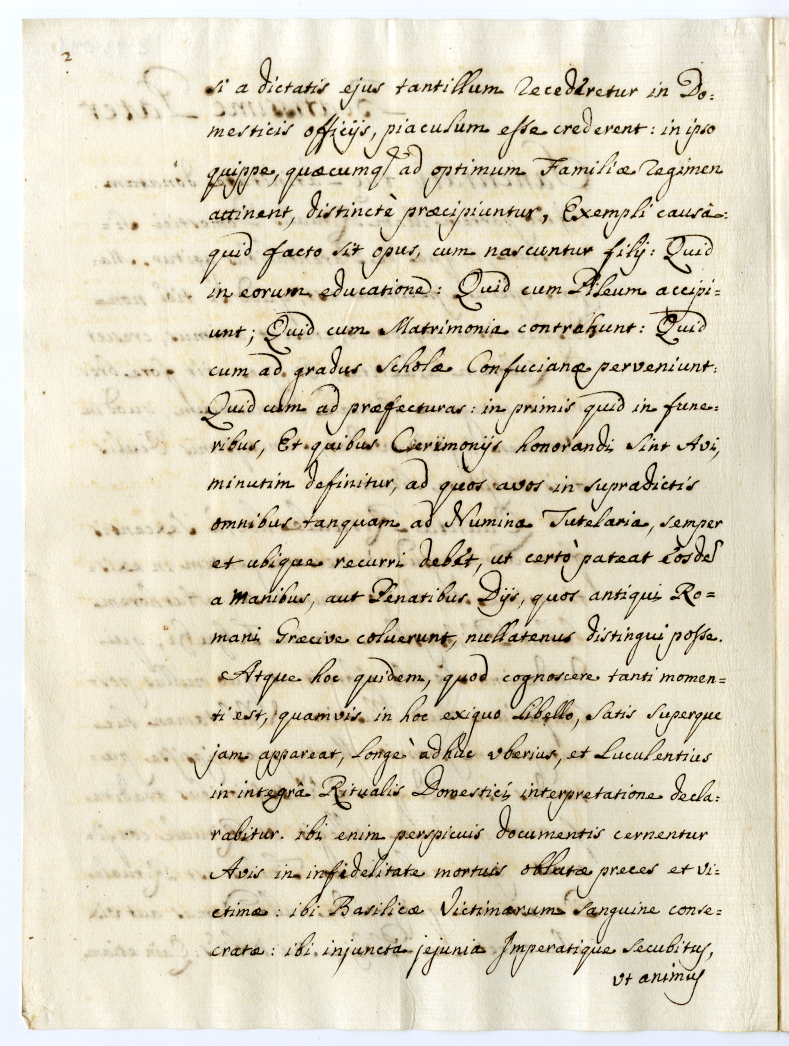 2
si a dictatis ejus tantillum recederetur in Do:
mesticis officijs, piaculum esse crederent: in ipso
quippe, quæcumq₃ ad optimum Familiæ regimen
attinent, distinctè præcipiuntur, Exempli causâ:
quid facto sit opus, cum nascuntur filij: Quid
in eorum educatione: Quid cum Pileum accipi=
unt; Quid cum Matrimonia contrahunt: Quid
cum ad gradus scholæ Confucianæ perveniunt:
Quid cum ad præfecturas: in primis quid in fune=
ribus, Et quibus Cæremonijs honorandi sint Avi,
minutim definitur, ad quos avos in supradictis
omnibus tanquam ad Numina Tutelaria, semper
et ubique recurri debet, ut certò pateat eosdē
a Manibus, aut Penatibus Dijs, quos antiqui Ro=
mani Græcive coluerunt, nullatenus distingui posse.
Atque hoc quidem, quod cognoscere tanti momen=
ti est, quamvis in hoc exiguo libello, satis superque
jam appareat, longè adhuc vberius, et luculentius
in integrâ Ritualis Domestici interpretatione decla=
rabitur. ibi enim perspicuis documentis cernentur
Avis in infidelitate mortuis oblatæ preces et vi=
ctimæ: ibi Basilicæ Victimarum sanguine conse=
cratæ: ibi injuncta jejunia Imperatique secubitus,
vt animus